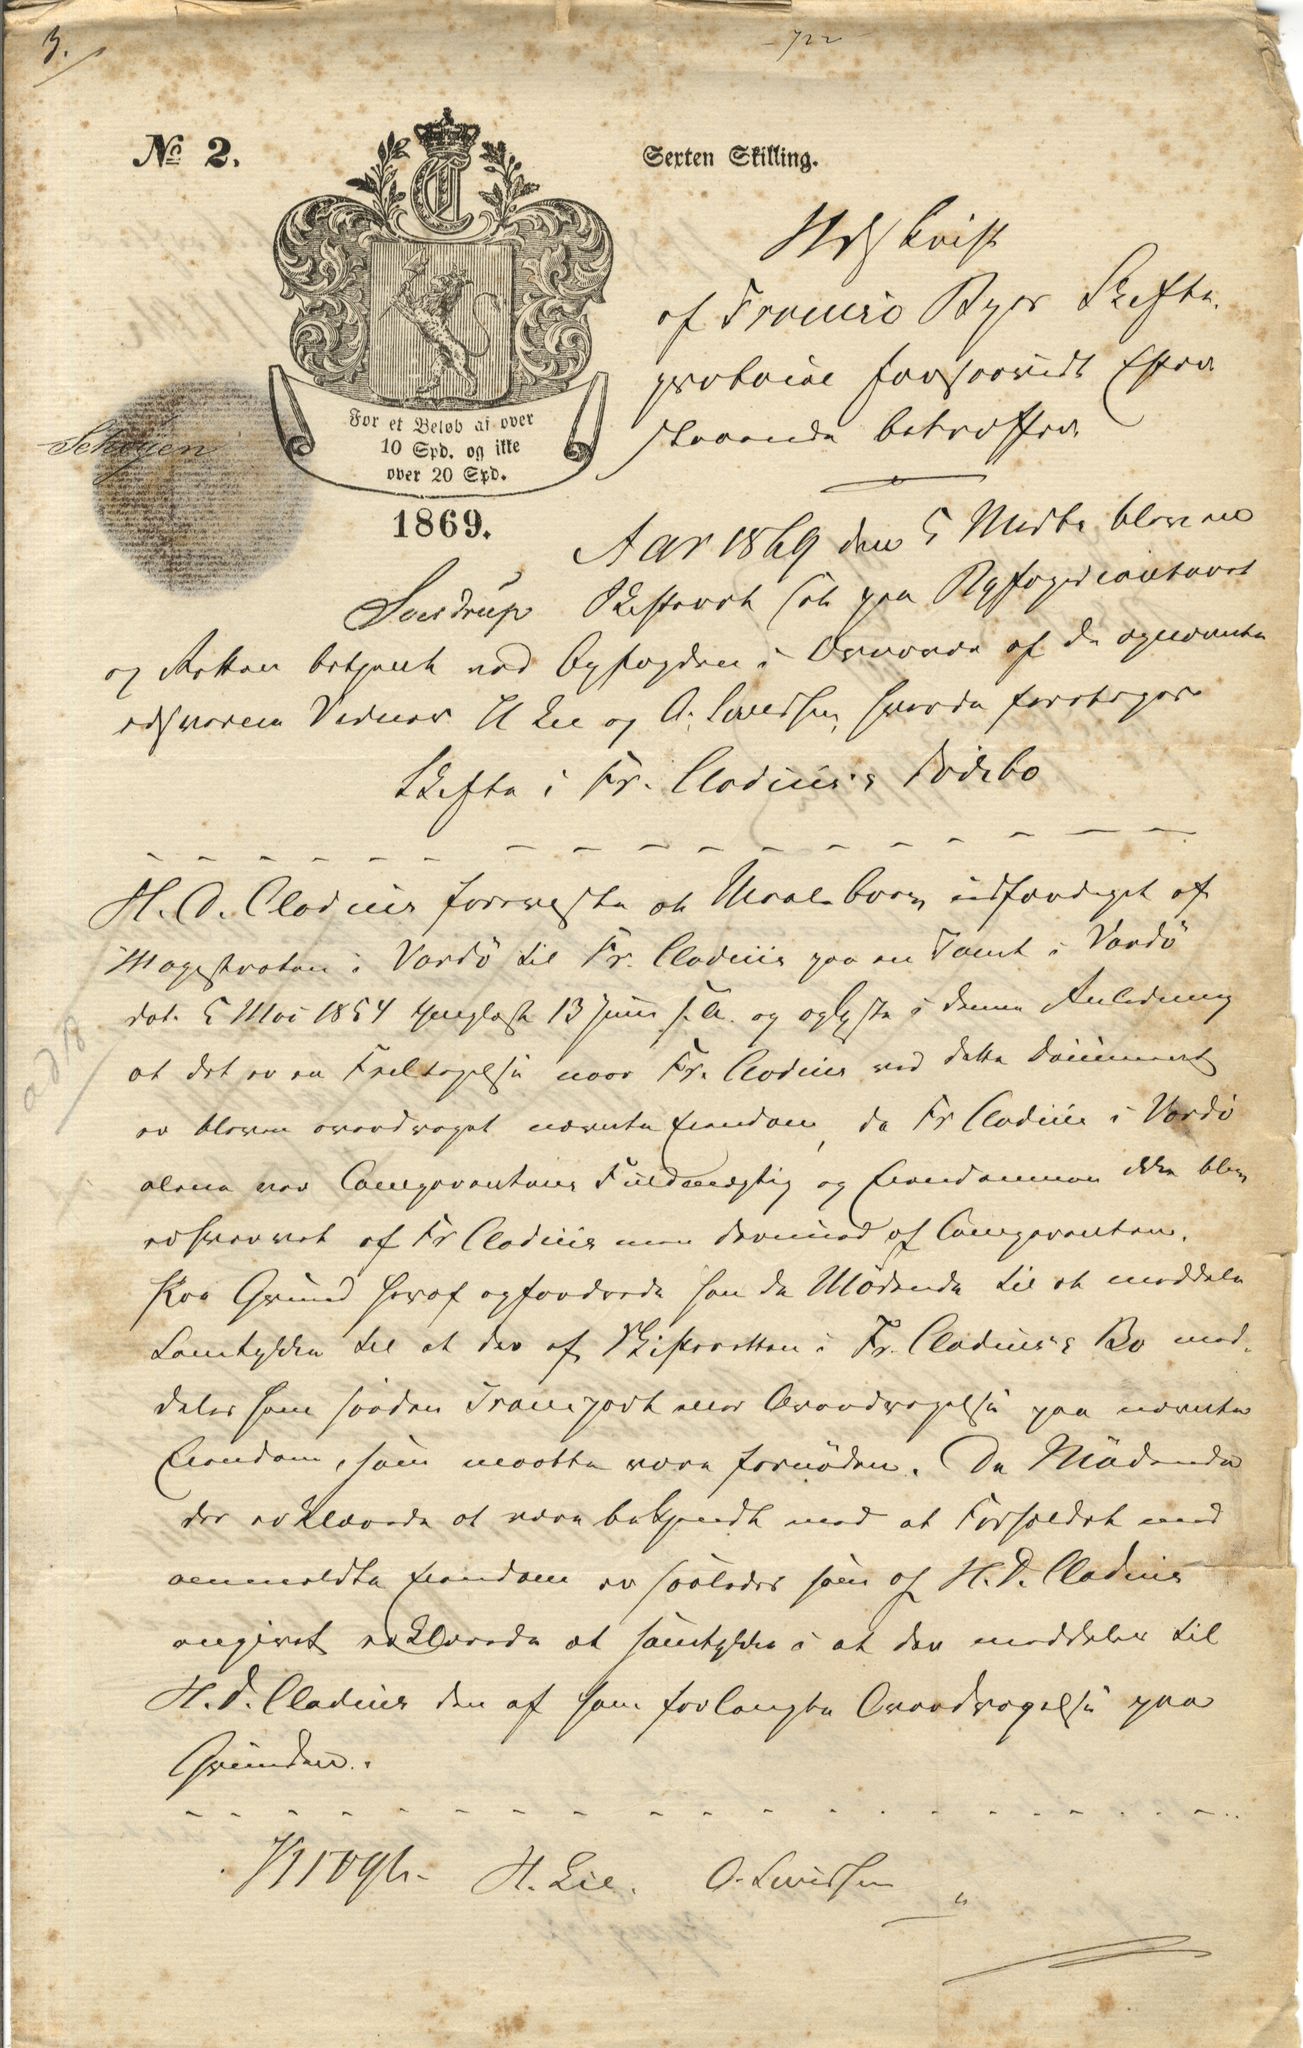 3.
- 722 -
No 2.
Sexten Skilling.
Udskrift
af Tromsø Byes Skifte-
protocol forsaavidt Efter-
staaende betræffer
For et Beløb af over
10 Spd. og ikke
over 20 Spd.
1869.
Schøyen
Sverdrup
Aar 1869 den 5 blev en
Skifteret sat paa Byfogedcontoret
og Retten betjent ved Byfogden i Overvær af de opnævnte
edsvorne Vidner H Lie og O. Sivertsen, hvorda foretoges
Skifte i Fr. Clodius's Dødsbo
H. D. Clodius foreviste et Maalebrev udfærdiget af
Magistraten i Vardö til Fr. Clodius paa en Tomt i Vardö
dat. 5 Mai 1854 thinglæst 13 Juni s. A. og oplyste i denne Anledning
at det er en Feiltagelse naar Fr. Clodius ved dette Document
er bleven overdraget nævnte Eiendom, da Fr Clodius i Vardö
alene var Comparentens Fuldmægtig og Eiendommen ikke blev
erhvervet af Fr Clodius men derimod af Comparenten.
Paa Grund heraf opfordrede han de Mödende til at meddele
Samtykke til at der af Skifteretten i Fr. Clodius's Bo med-
deles ham saadan Transport eller Overdragelse paa nævnte
Eiendom, som maatte være fornöden. De Mödende
der erklærede at være bekjendt med at Forholdet med
anmeldte Eiendom er saaledes som af H. D. Clodius
angivet erklærede at samtykke i at der meddeles til
H. D. Clodius den af ham forlangte Overdragelse paa
Grunden.
Krogh. H. Lie. O. Sivertsen